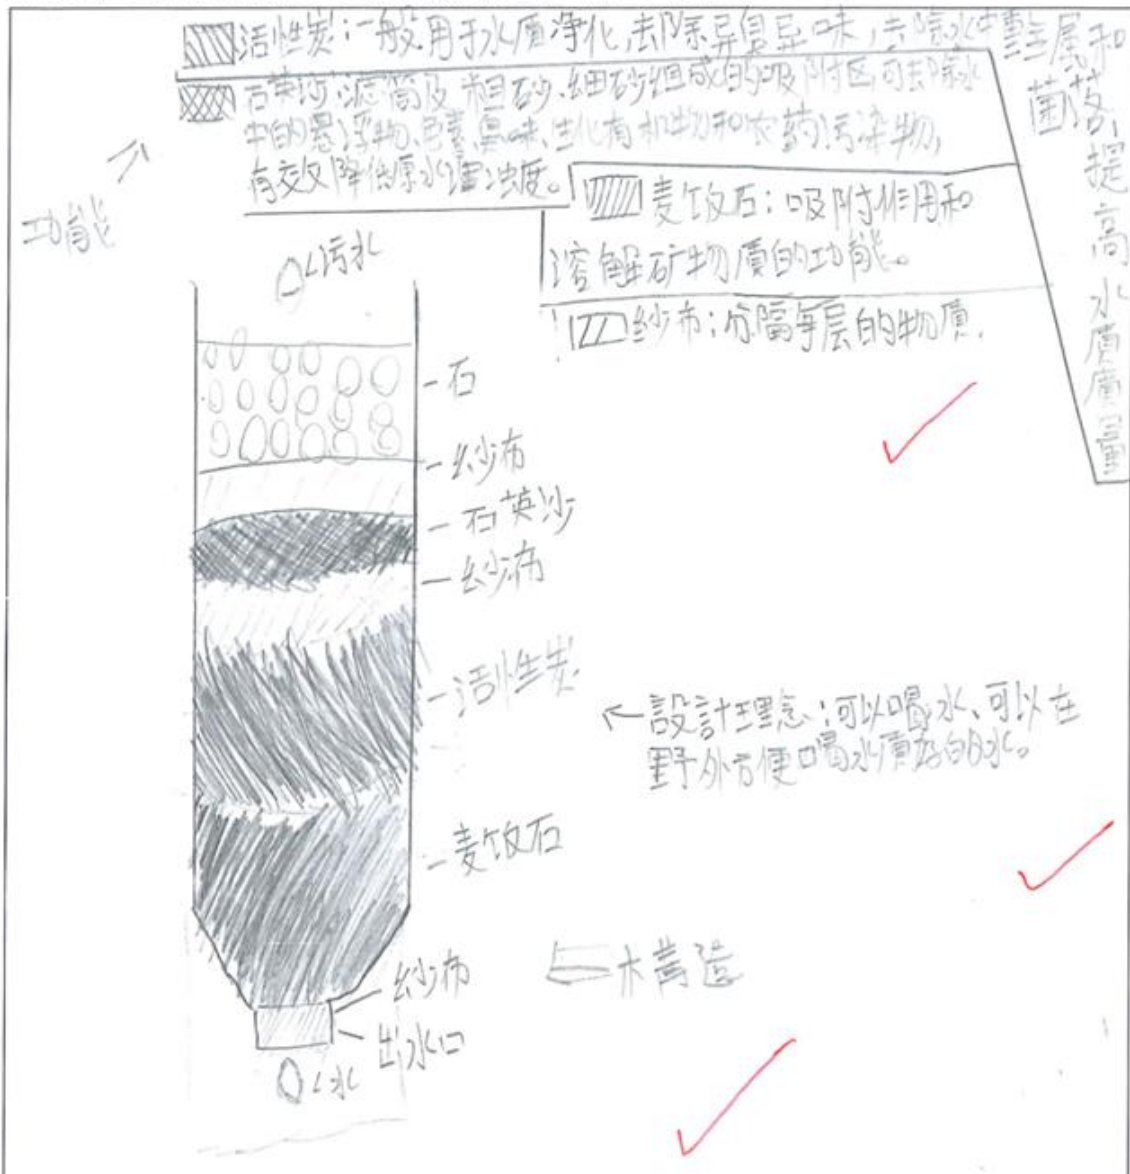 活性炭:一般用于水质净化,去除异臭异味,去除水中重金属和
菌落,提高水質質量
石英沙:滤筒及粗砂、细砂组成的吸附区,可去除水
中的悬浮物、色素、臭味、生化有机物和农药污染物,
有效降低原水浊度。
功能
麦饭石:吸附作用和
溶解矿物質的功能。
纱布:分隔每层的物質.
污水
石
纱布
石英沙
纱布
活性炭
設計理念:可以喝水、可以在
野外方便喝水質好的水。
麦饭石
構造
纱布
出水口
水